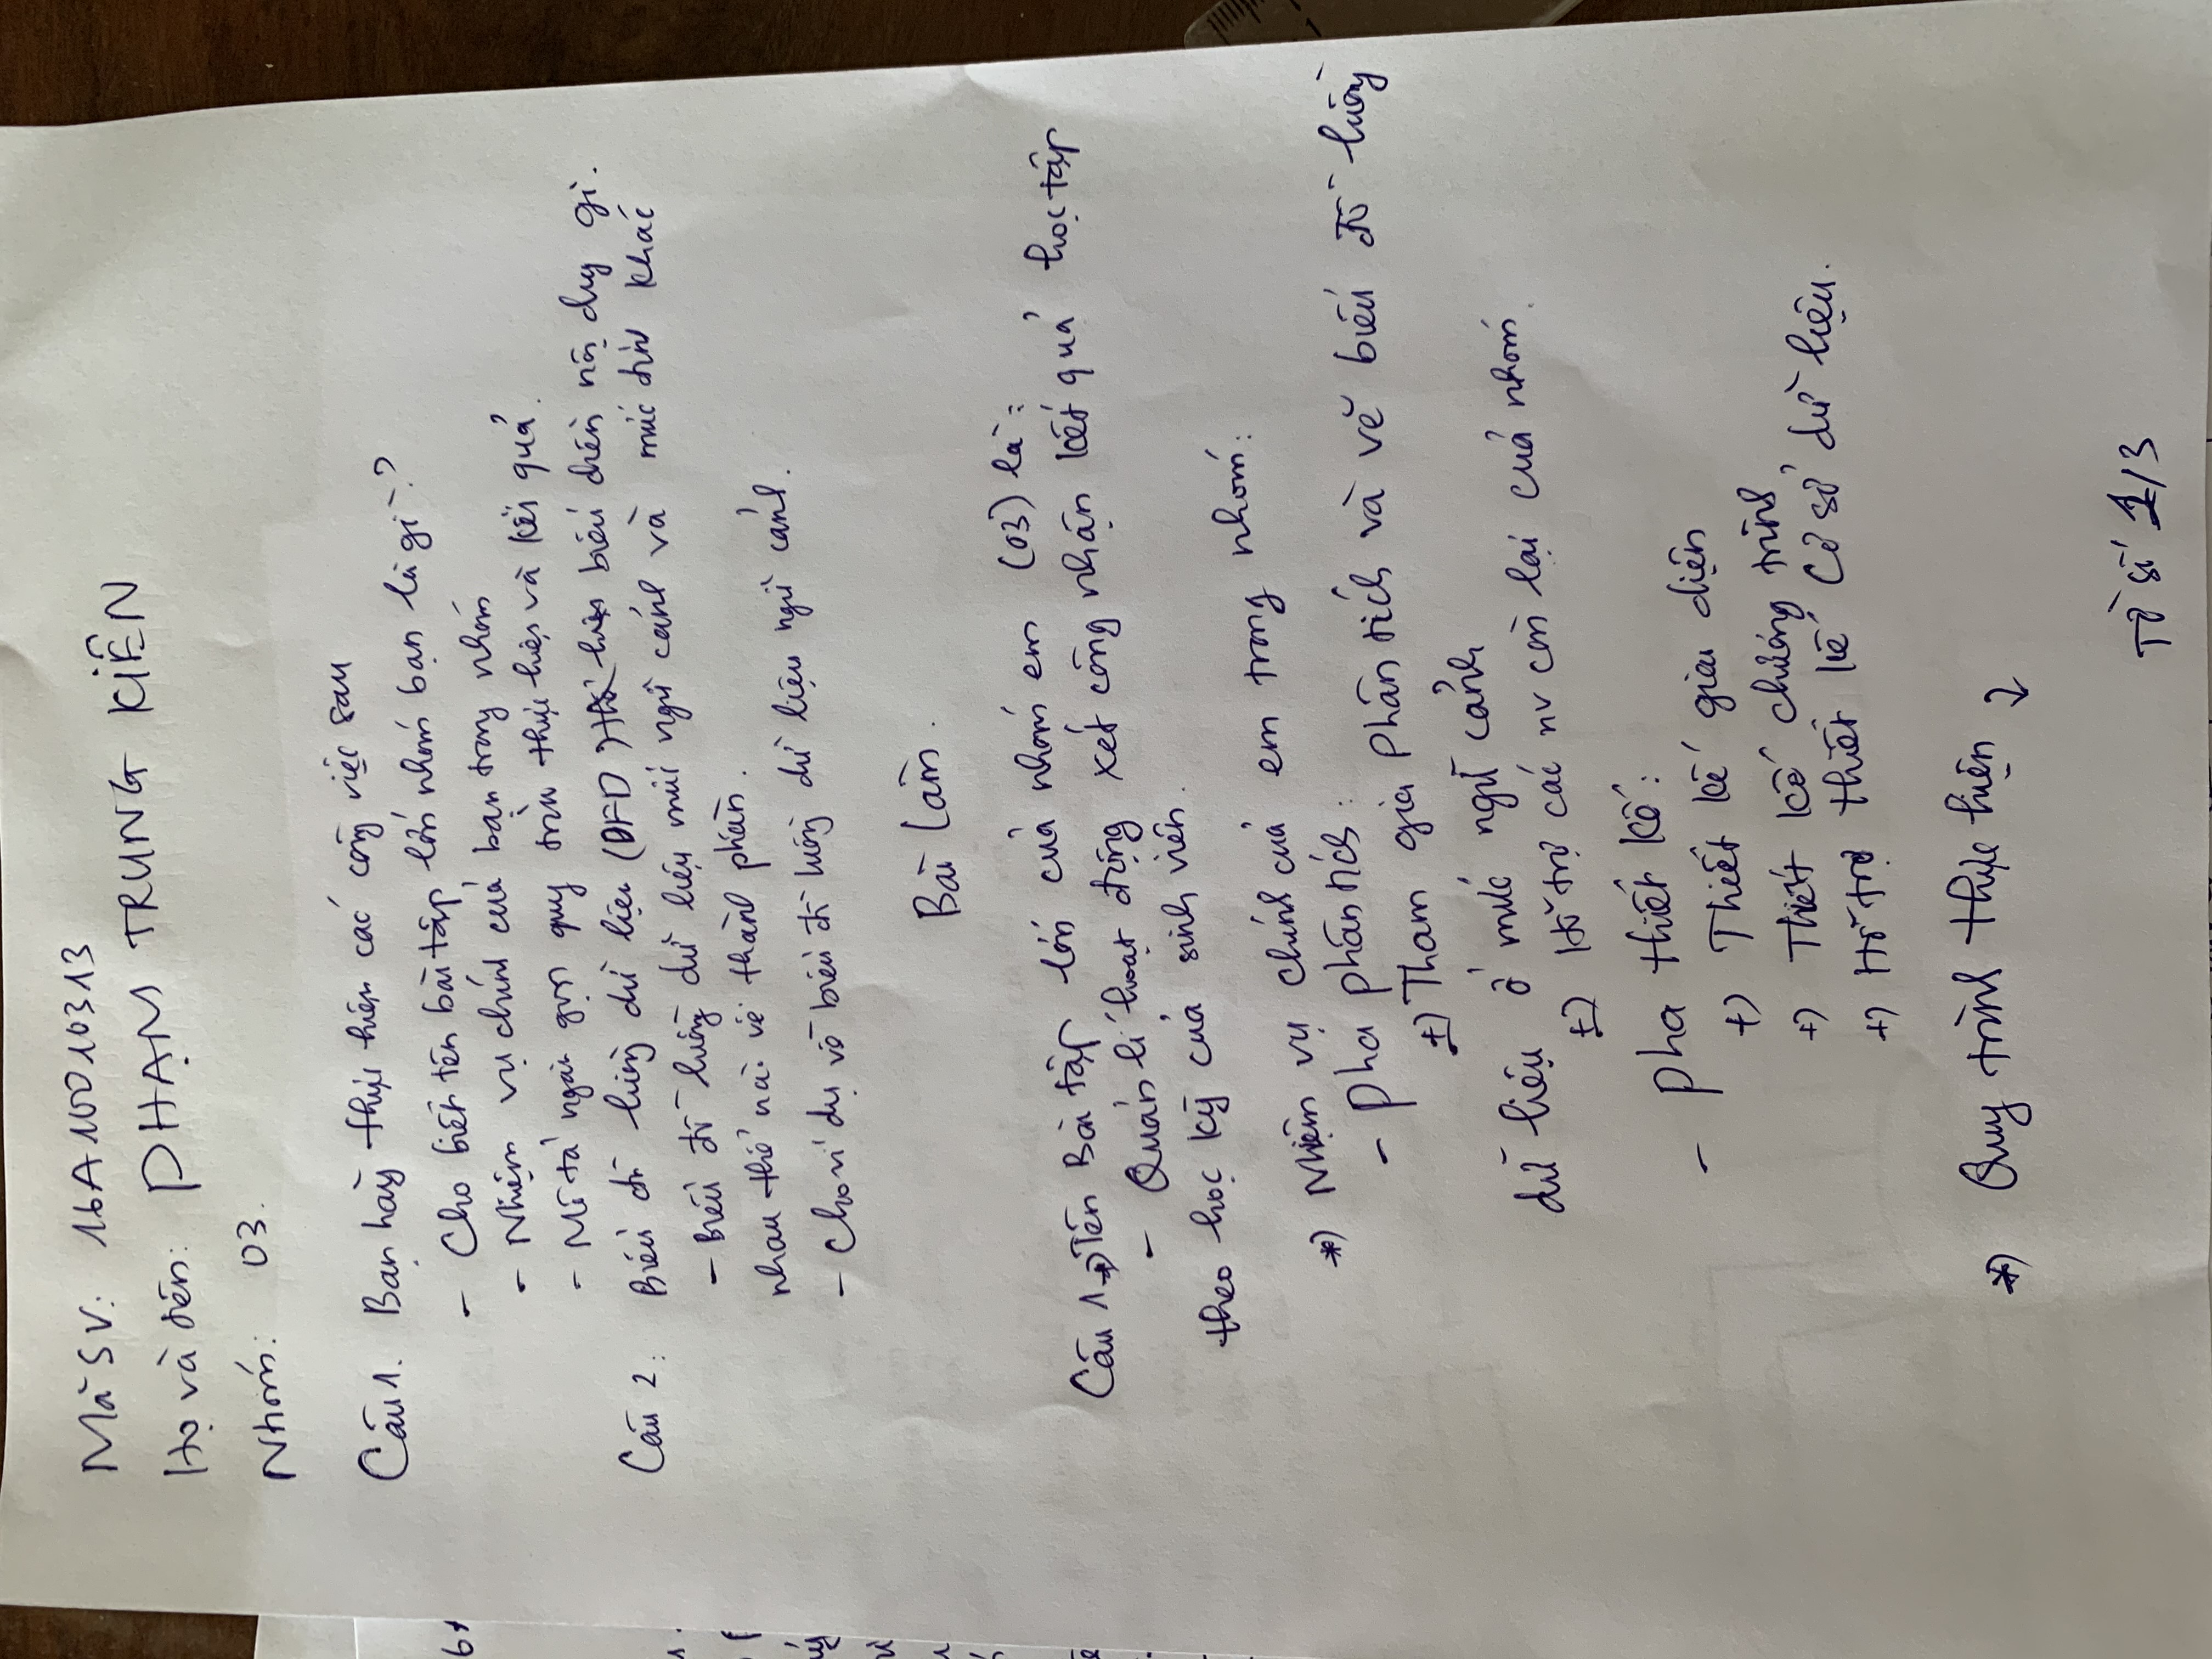 Mã SV: 16A10010313
Họ và tên: PHẠM TRUNG KIÊN
Nhóm: 03.
Câu 1. Bạn hãy thực hiện các công việc sau
- Cho biết tên bài tập lớn nhóm bạn là gì?
- Nhiệm vụ chính của bạn trong nhóm
- Mô tả ngắn gọn quy trình thực hiện và kết quả.
Câu 2: Biểu đồ luồng dữ liệu (DFD) thể hiện biểu diễn nội dung gì.
- Biểu đồ luồng dữ liệu mức ngữ cảnh và mức đỉnh khác
nhau thế nào về thành phần.
- Cho ví dụ vẽ biểu đồ luồng dữ liệu ngữ cảnh.
Bài làm.
Câu 1 *) Tên Bài tập lớn của nhóm em (03) là:
- Quản lí hoạt động xét công nhận kết quả học tập
theo học kỳ của sinh viên.
*) Nhiệm vụ chính của em trong nhóm:
- Pha phân tích:
+) Tham gia phân tích và vẽ biểu đồ luồng
dữ liệu ở mức ngữ cảnh
+) Hỗ trợ các nv còn lại của nhóm.
- Pha thiết kế:
+) Thiết kế giao diện
+) Thiết kế chương trình
+) Hỗ trợ thiết kế Cơ sở dữ liệu.
*) Quy trình thực hiện ↓
Tờ số 1/3